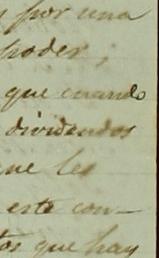 por una
poder,
que cuando
dividendos
que les
este con-
tos que hay